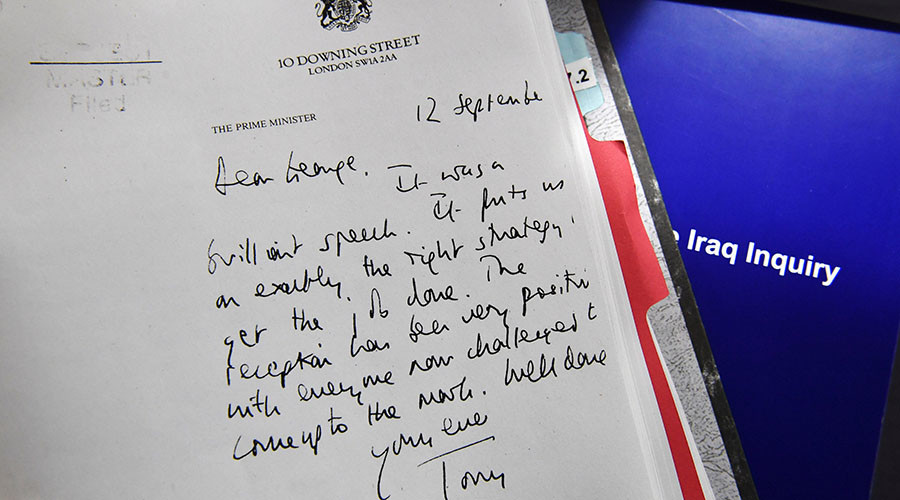 MASTER
Filed
10 DOWNING STREET
LONDON SW1A 2AA
THE PRIME MINISTER
12 Septembe
Dear George. It was a
brilliant speech. It puts us
on exactly the right strategy
get the job done. The
reception has been very positive
with everyone now challenged t
come up to the mark. Well done
Yours ever
Tony
7.2
e Iraq Inquiry